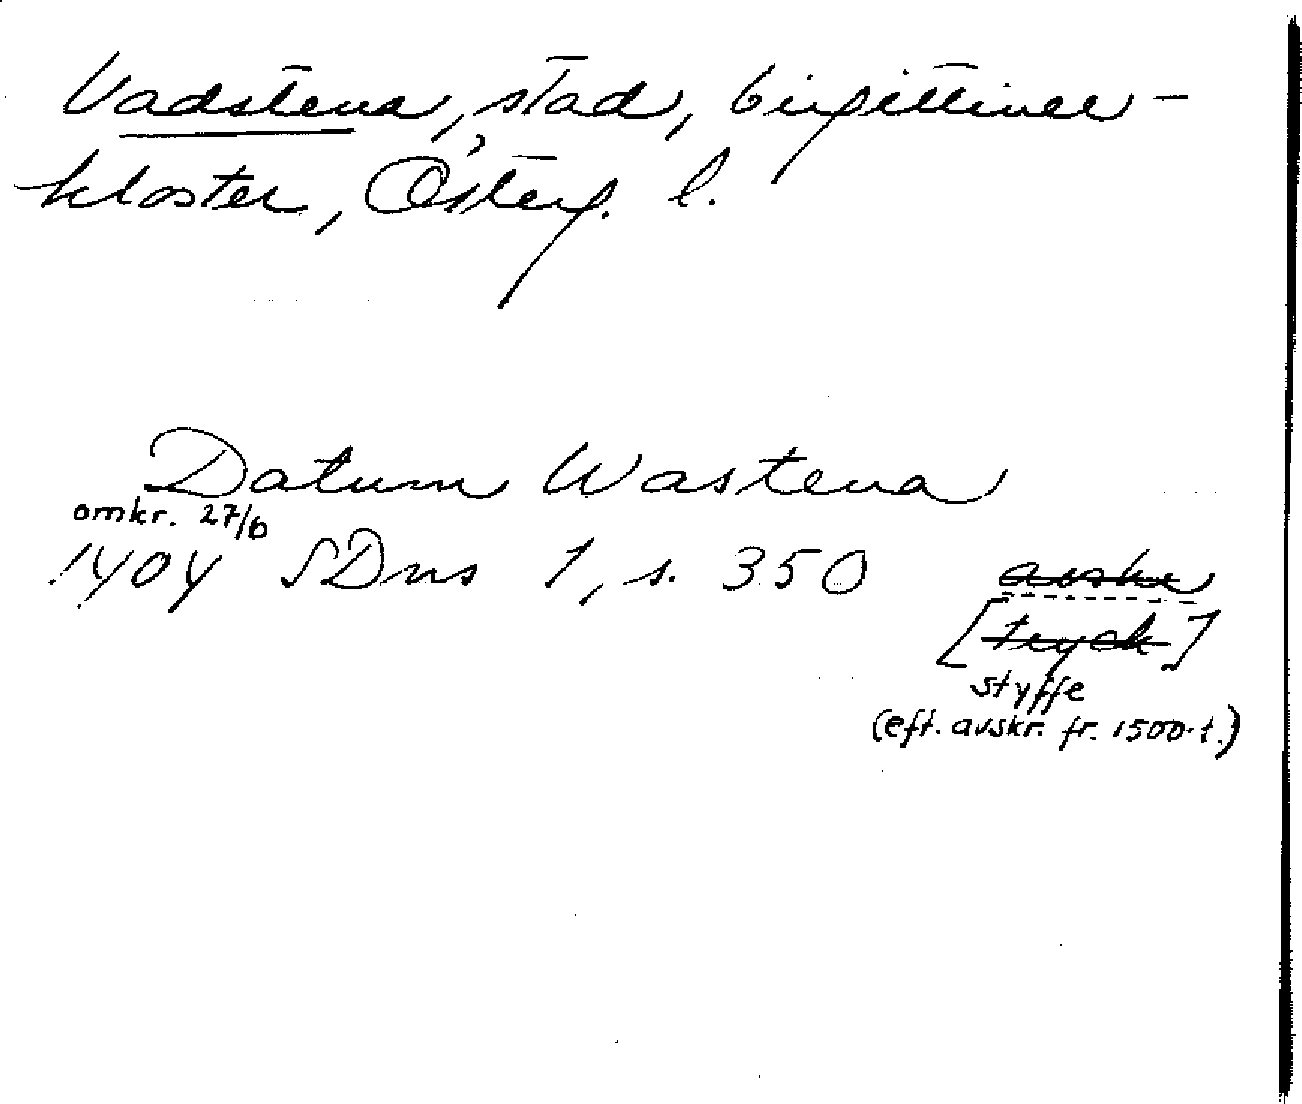 Vadstena, stad, birgittiner-
kloster, Österg. l.
Datum Wastena
omkr. 27/6
1404 SDns 1, s. 350 avskr
[tryck]
styffe
(eft. avskr. fr. 1500-t.)